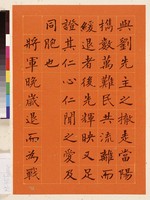 與劉先主之撤走當陽
攜數萬難民共前後
緩退者後先輝映又足
證其仁心仁聞之愛及
同胞也
將軍晚歲退而為戰